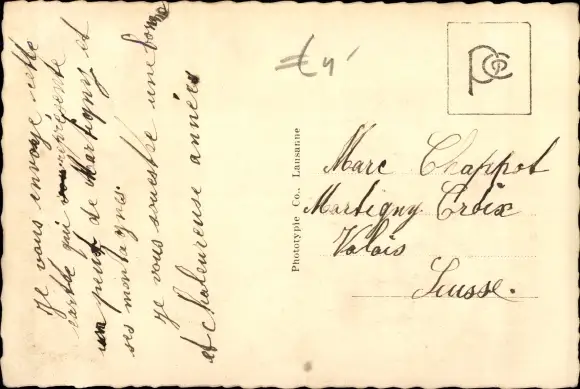 Je vous envoye cette
cartte qui représente
un peut de Martigny et
ses montagnes.
Je vous souestre une bonne
et chaleureuse année
Phototypie Co., Lausanne
Marc Chappot
Martigny Croix
Valais
Suisse.